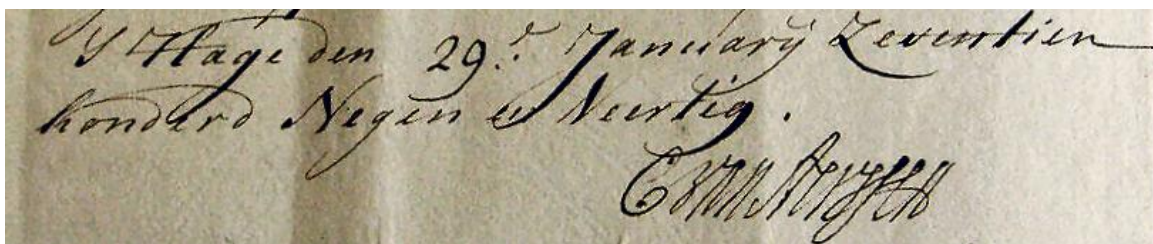 S'Hage den 29.e January Zeventien
honderd Negen en Veertig.
C van Aerssen